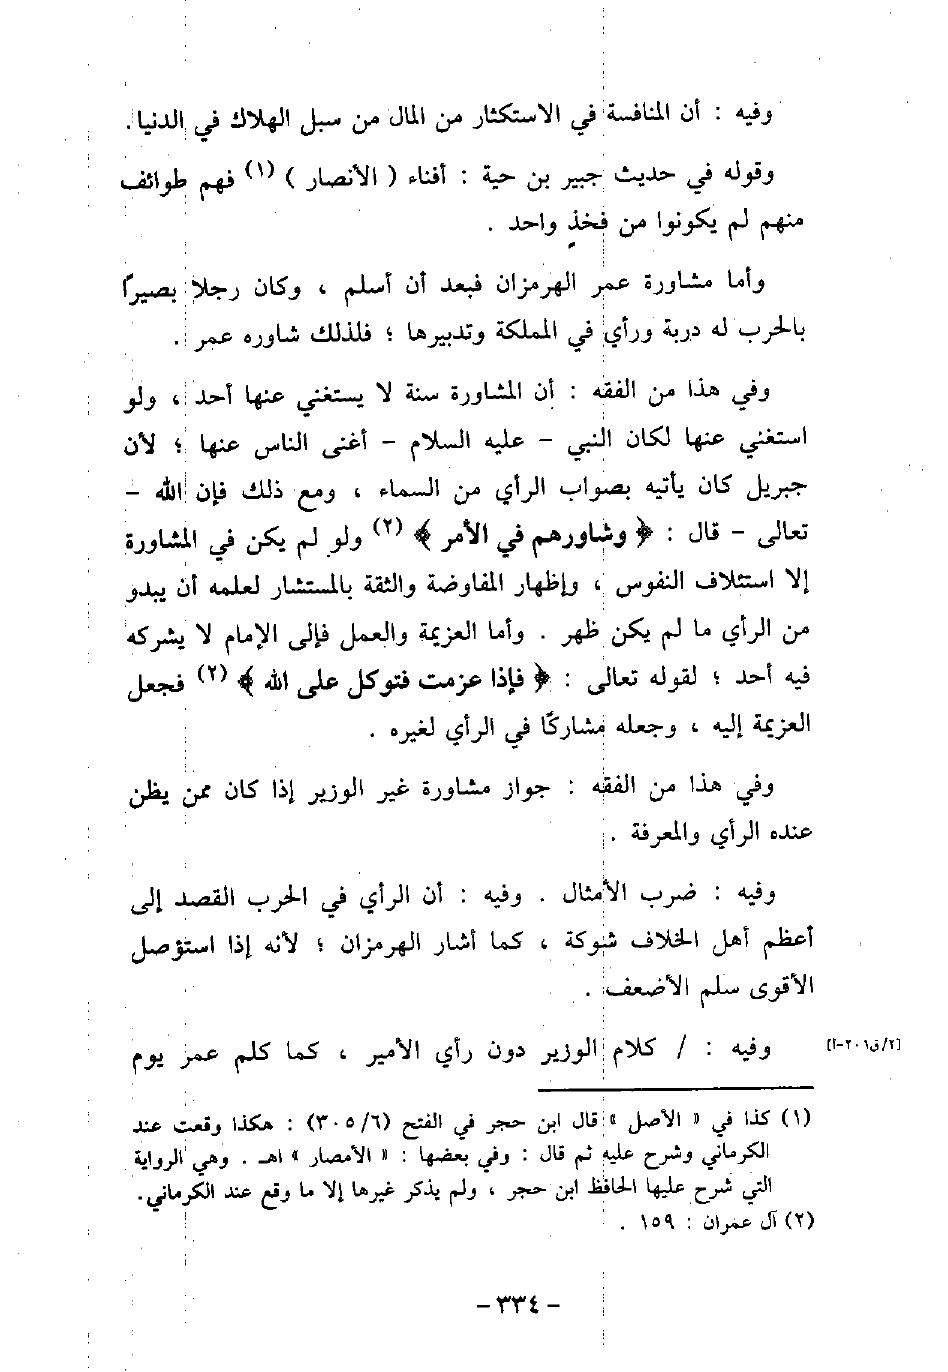 وفيه : أن المنافسة في الاستكثار من المال من سبل الهلاك في الدنيا.
وقوله في حديث جبير بن حية : أفناء ( الأنصار ) (١) فهم طوائف
منهم لم يكونوا من فخذٍ واحد .
وأما مشاورة عمر الهرمزان فبعد أن أسلم ، وكان رجلاً بصيرًا
بالحرب له دربة ورأي في المملكة وتدبيرها ؛ فلذلك شاوره عمر .
وفي هذا من الفقه : أن المشاورة سنة لا يستغني عنها أحد ، ولو
استغني عنها لكان النبي - عليه السلام - أغنى الناس عنها ؛ لأن
جبريل كان يأتيه بصواب الرأي من السماء ، ومع ذلك فإن الله -
تعالى - قال : ﴿ وشاورهم في الأمر ﴾ (٢) ولو لم يكن في المشاورة
إلا استئلاف النفوس ، وإظهار المفاوضة والثقة بالمستشار لعلمه أن يبدو
من الرأي ما لم يكن ظهر . وأما العزيمة والعمل فإلى الإمام لا يشركه
فيه أحد ؛ لقوله تعالى : ﴿ فإذا عزمت فتوكل على الله ﴾ (٢) فجعل
العزيمة إليه ، وجعله مشاركًا في الرأي لغيره .
وفي هذا من الفقه : جواز مشاورة غير الوزير إذا كان ممن يظن
عنده الرأي والمعرفة .
وفيه : ضرب الأمثال . وفيه : أن الرأي في الحرب القصد إلى
أعظم أهل الخلاف شوكة ، كما أشار الهرمزان ؛ لأنه إذا استؤصل
الأقوى سلم الأضعف .
وفيه : / كلام الوزير دون رأي الأمير ، كما كلم عمر يوم [٢/ق٢٠١-أ]
(١) كذا في « الأصل » قال ابن حجر في الفتح (٣٠٥/٦) : هكذا وقعت عند
الكرماني وشرح عليه ثم قال : وفي بعضها : « الأمصار » اهـ . وهي الرواية
التي شرح عليها الحافظ ابن حجر ، ولم يذكر غيرها إلا ما وقع عند الكرماني.
(٢) آل عمران : ١٥٩ .
- ٣٣٤ -